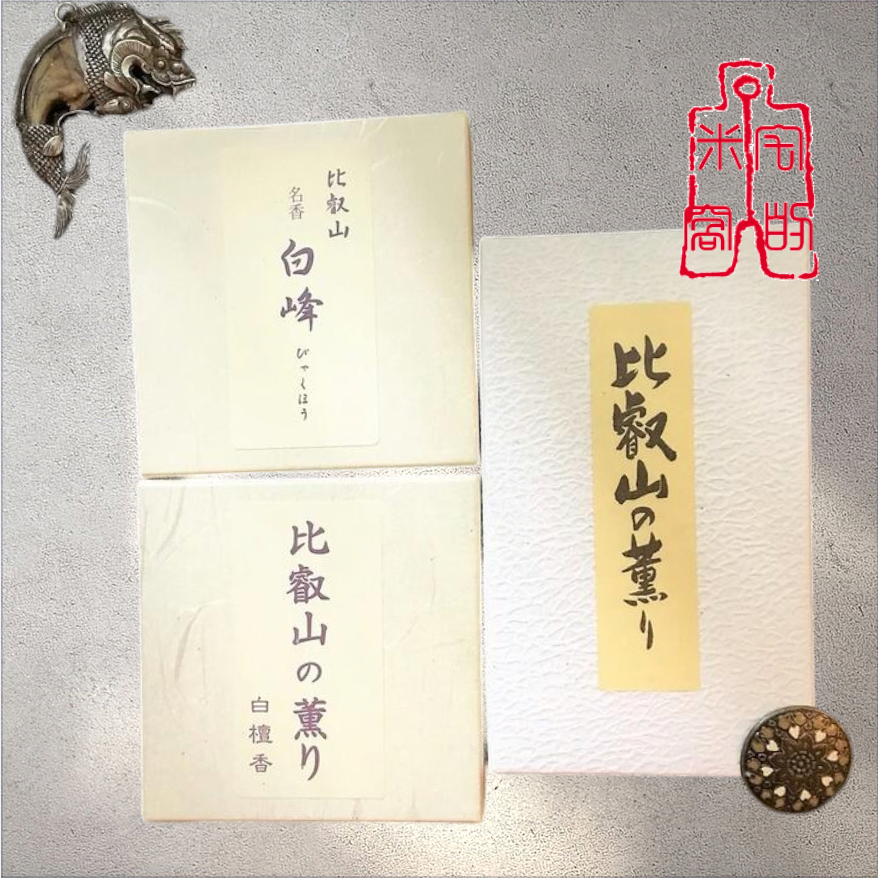 比叡山
名香
白峰
びゃくほう
比叡山の薫り
白檀香
比叡山の薫り
宅的
米